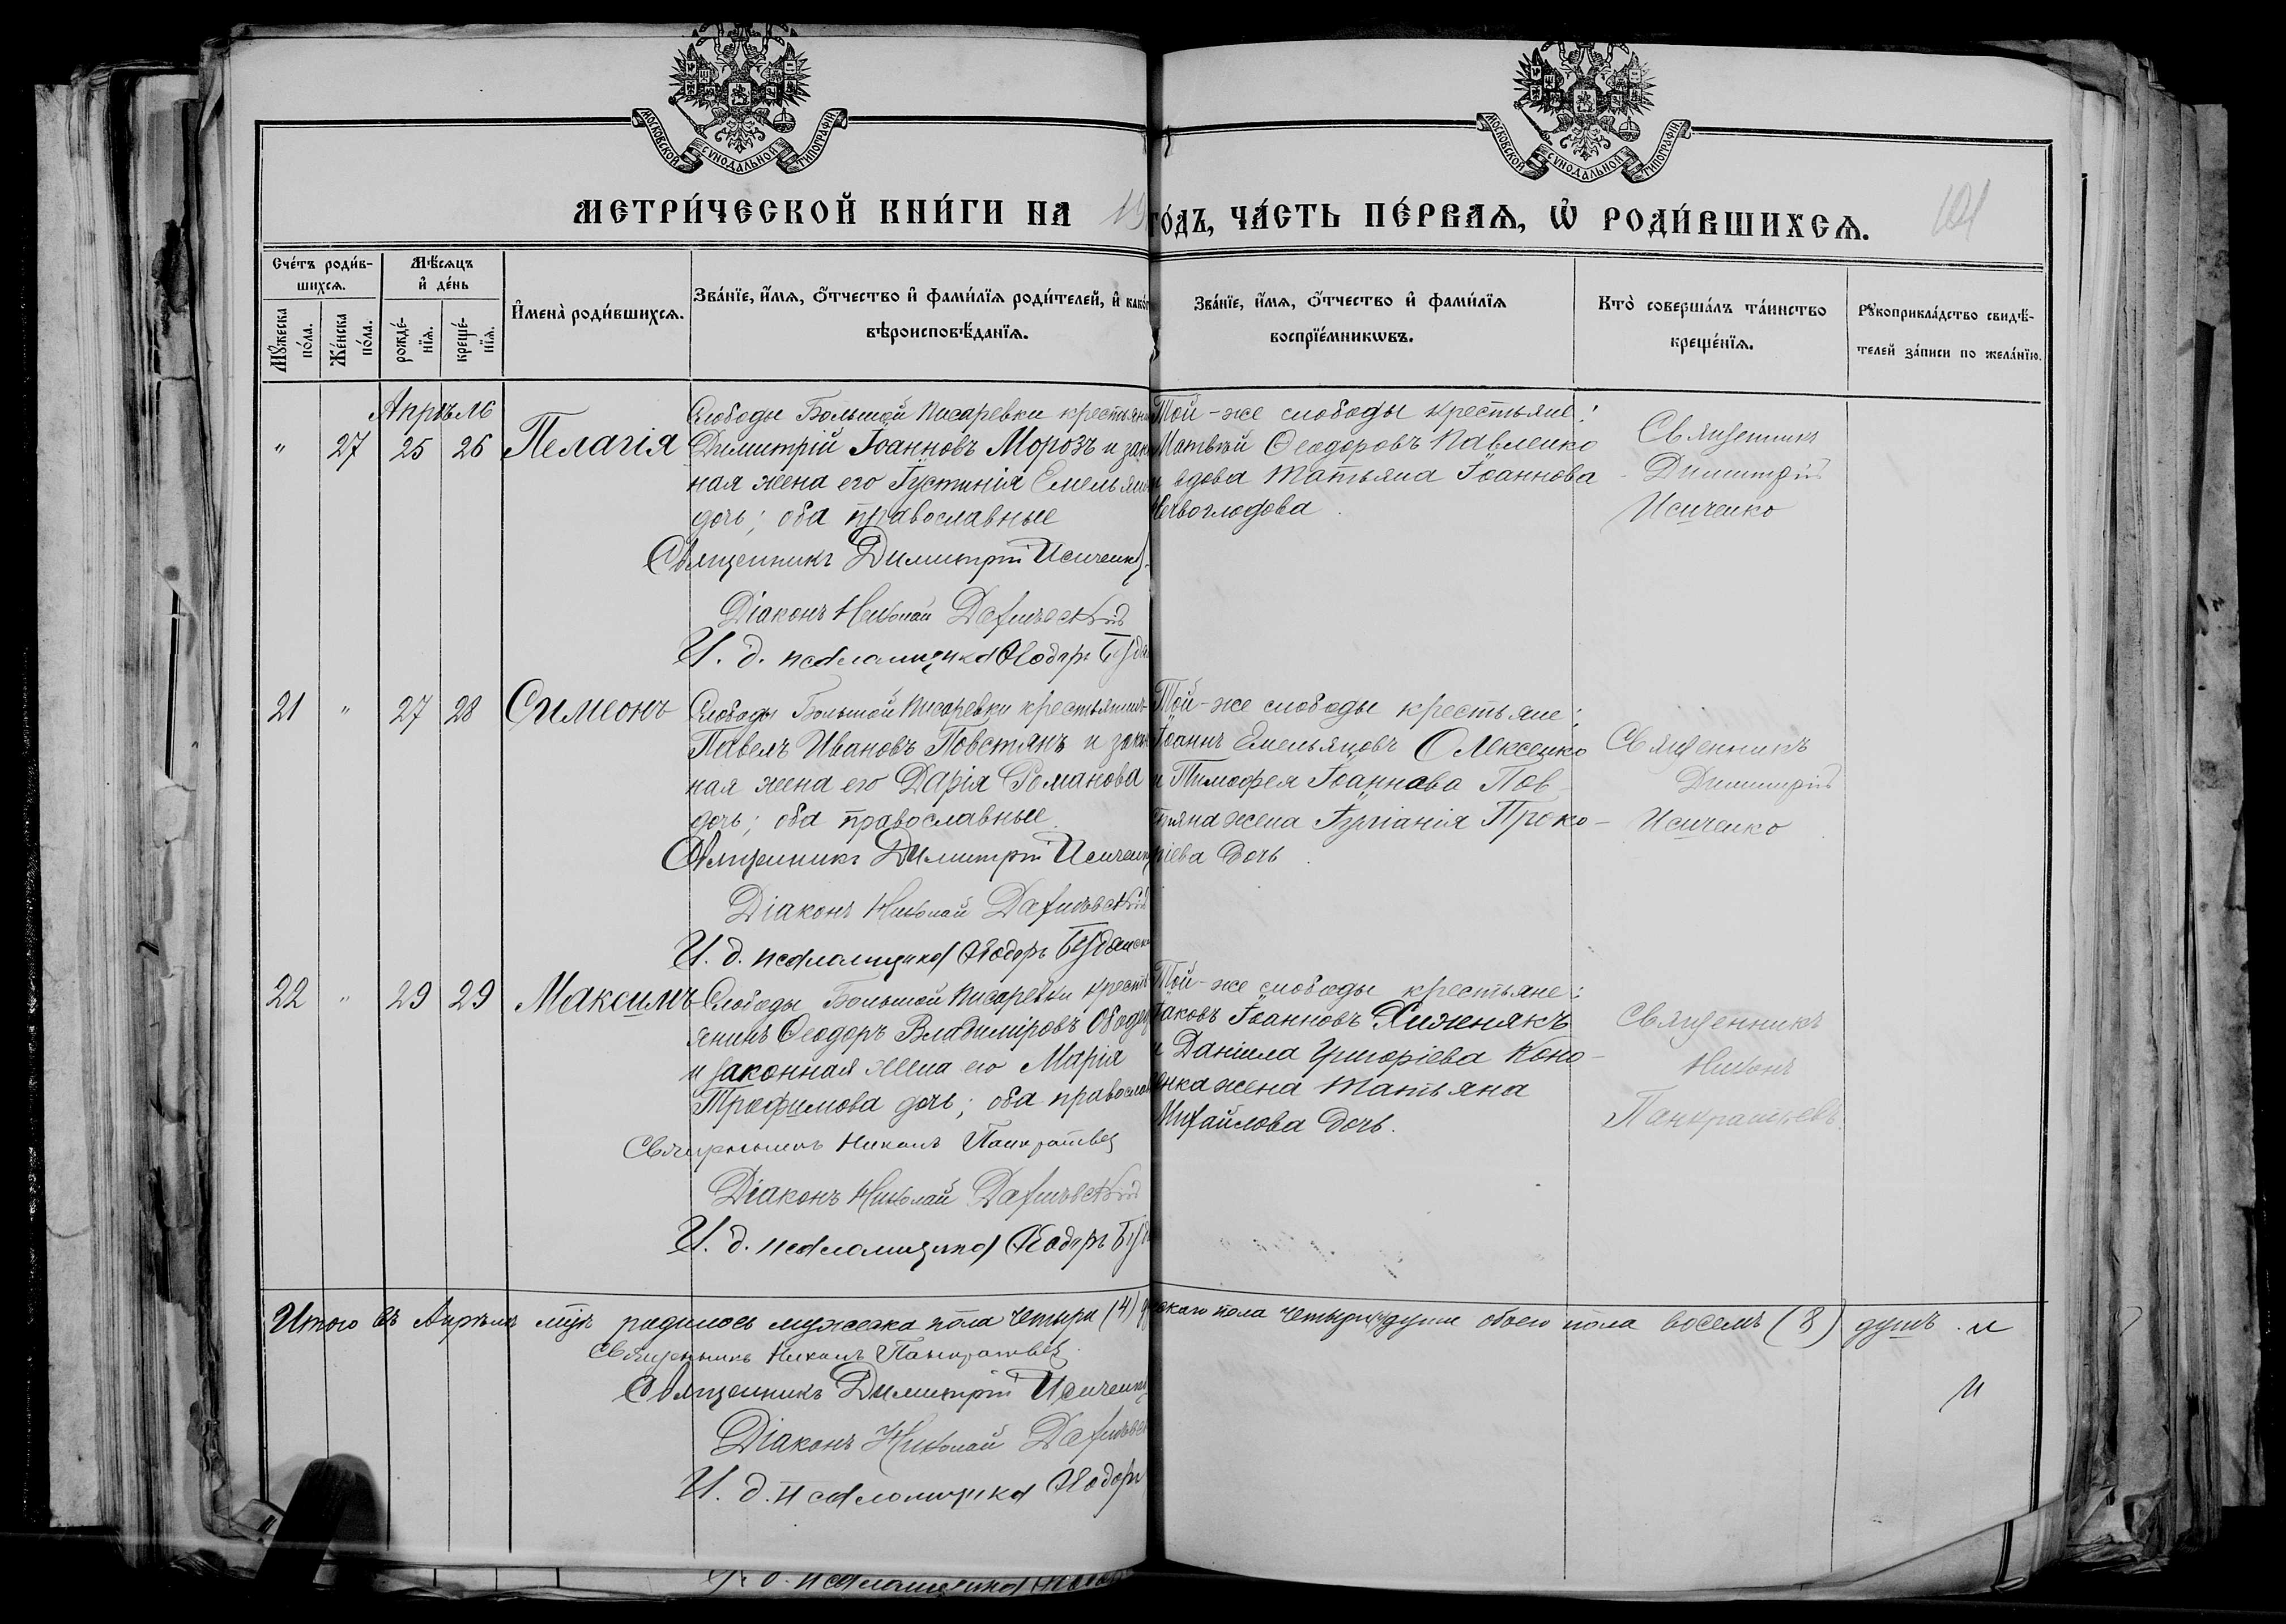 МОСКОВСКОЙ СУНОДАЛЬНОЙ ТИПОГРАФІИ
МОСКОВСКОЙ СУНОДАЛЬНОЙ ТИПОГРАФІИ
МЕТРИ́ЧЕСКОЙ КНИ́ГИ НА 19
ГО́ДЪ, ЧА́СТЬ ПЕ́РВАЯ, Ѡ РОДИ́ВШИХСЯ.
101
Сче́тъ роди́в-
шихся.
Мꙋ́жеска по́ла.
Же́нска по́ла.
Мѣ́сяцъ
и҆ де́нь
рожде́-
нїя.
креще́-
нїя.
И҆мена̀ роди́вшихся.
Зва́нїе, и҆́мя, ѻ҆́тчество и҆ фами́лїя роди́телей, и҆ како́г
вѣроисповѣ́данїя.
Зва́нїе, и҆́мя, ѻ҆́тчество и҆ фами́лїя
воспрїе́мникѡвъ.
Кто̀ соверша́лъ та́инство
креще́нїя.
Рꙋкоприкла́дство свидѣ́-
телей за́писи по жела́нїю.
Апрѣль
" 27 25 26 Пелагія
Слободы Большой Писаревки крестьянинъ
Димитрій Іоанновъ Морозъ и закон
ная жена его Іустинія Емельянова
дочь; оба православные
Священникъ Димитрій Исиченко
Діаконъ Николай
И. д. псаломщика Ѳеодоръ
Той-же слободы крестьяне:
Матѳѣй Ѳеодоровъ Павленко
и вдова Татьяна Іоаннова
Червоглодова
Священникъ
Димитрій
Исиченко
21 " 27 28 Симеонъ
Слободы Большой Писаревки крестьянинъ
Павелъ Ивановъ Повстянъ и закон
ная жена его Дарія Романова
дочь; оба православные
Священникъ Димитрій Исиченко
Діаконъ Николай
И. д. псаломщика Ѳеодоръ
Той-же слободы крестьяне:
Іоаннъ Емельяновъ Олексенко
и Тимоѳея Іоаннова Пов-
стяна жена Іуліанія Проко-
піева дочь
Священникъ
Димитрій
Исиченко
22 " 29 29 Максимъ
Слободы Большой Писаревки кресть
янинъ Ѳеодоръ Владиміровъ
и законная жена его Марія
Трофимова дочь; оба православ
Священникъ Никонъ Панкратьевъ
Діаконъ Николай
И. д. псаломщика Ѳеодоръ
Той-же слободы крестьяне:
Іаковъ Іоанновъ Хижнякъ
и Даніила Григоріева Коно-
ненка жена Татьяна
Михайлова дочь.
Священникъ
Никонъ
Панкратьевъ
Итого въ Апрѣлѣ мцѣ родилось мужеска пола четыре (4) женскаго пола четыре (4) души обоего пола восемь (8) душъ.
Священникъ Никонъ Панкратьевъ
Священникъ Димитрій Исиченко
Діаконъ Николай
И. д. псаломщика Ѳеодоръ
И. д. псаломщика